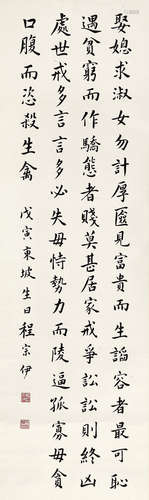 娶媳求淑女勿計厚匳見富貴而生諂容者最可恥
遇貧窮而作驕態者賤莫甚居家戒爭訟訟則終凶
處世戒多言言多必失毋恃勢力而陵逼孤寡毋貪
口腹而恣殺生禽 戊寅東坡生日程宗伊